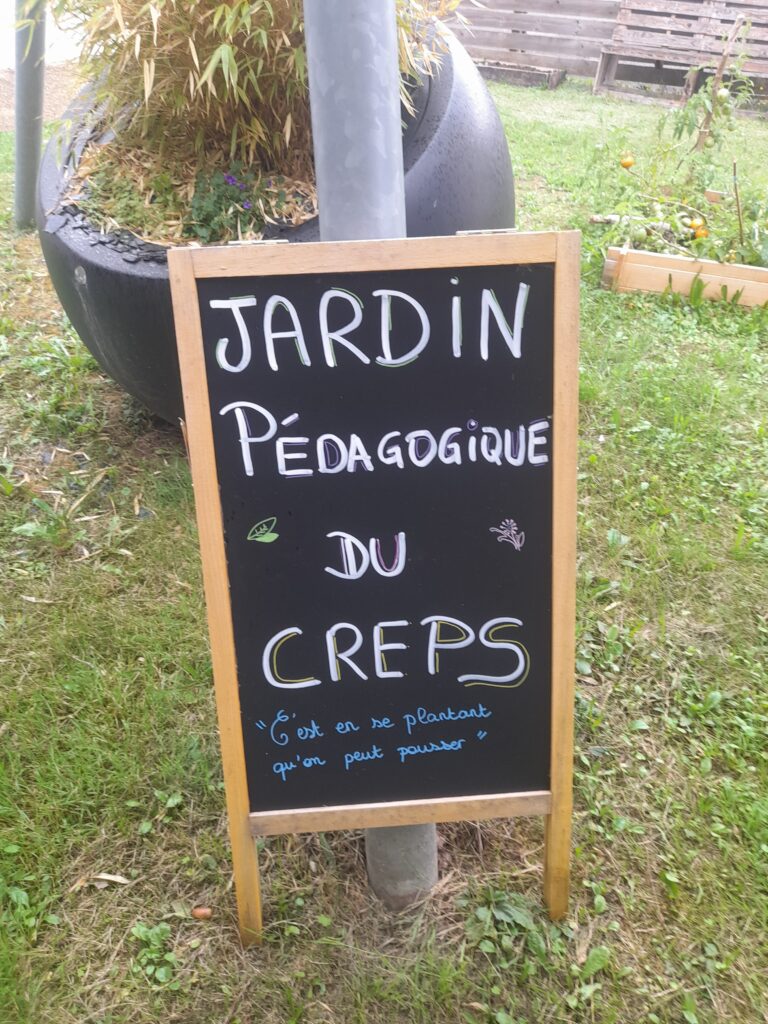 JARDiN
PÉDAGOGiQUE
DU
CREPS
"C'est en se plantant
qu'on peut pousser"